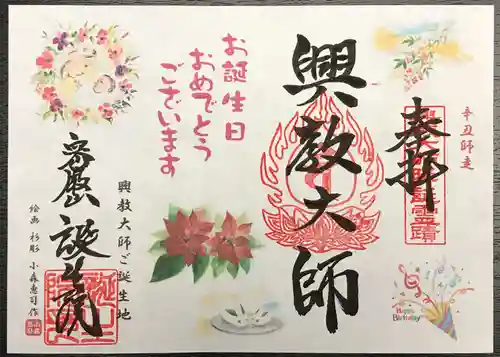 辛丑師走
奉拝
興教大師
お誕生日
おめでとう
ございます
興教大師ご誕生地
誕生院
絵画 杉彫 小森惠司作
Happy
Birthday